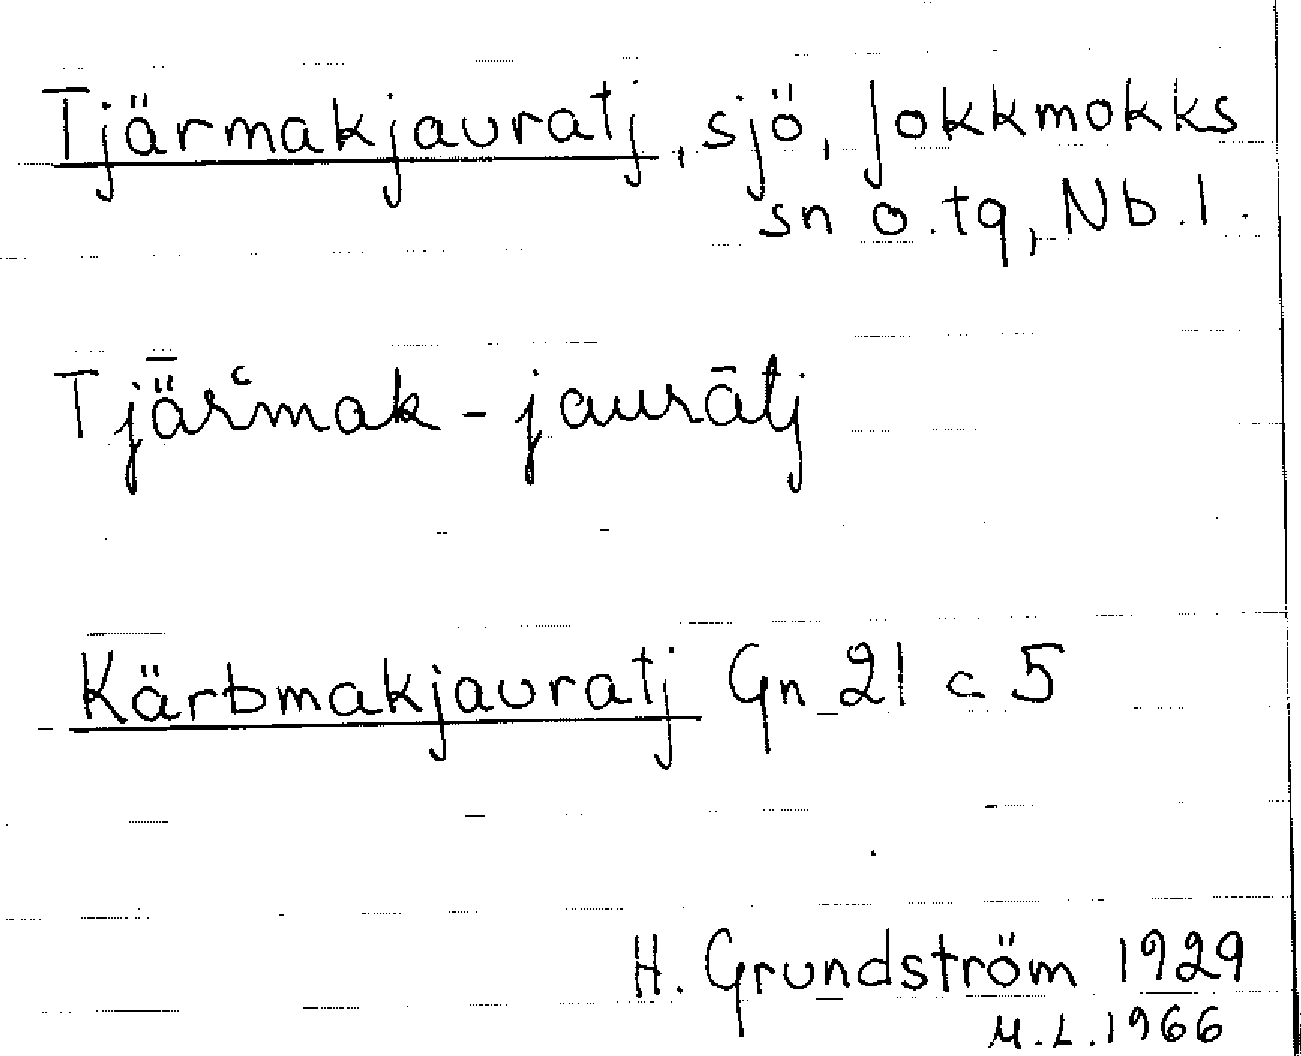 Tjärmakjauratj, sjö, Jokkmokks
sn o. tg, Nb. l.
Tjǟrʿmak-jaurātj
Kärbmakjauratj Gn 21 c 5
H. Grundström 1929
M.L. 1966